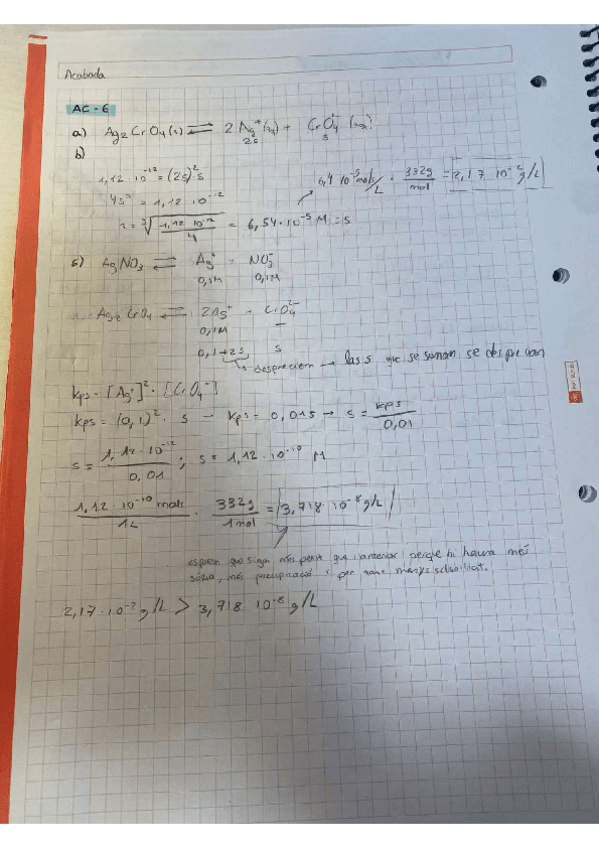 Acabada
AC - 6
a) Ag2CrO4(s) ⇌ 2Ag⁺(aq) + CrO4²⁻(aq)
2s s
b)
1,12 · 10⁻¹² = (2s)² s
4s³ = 1,12 · 10⁻¹²
6,4 10⁻⁵ mols/L · 332g/mol = 2,17 · 10⁻² g/L
s = ∛(1,12 · 10⁻¹²/4) = 6,54 · 10⁻⁵ M = s
c) AgNO3 ⇌ Ag⁺ + NO3⁻
0,1M 0,1M
Ag2CrO4 ⇌ 2Ag⁺ + CrO4²⁻
0,1M –
0,1+2s s
despreciem → las s que se suman se desprecian
kps = [Ag⁺]² · [CrO4⁻]
kps = (0,1)² · s → kps = 0,01s → s = kps/0,01
s = 1,12 · 10⁻¹²/0,01 ; s = 1,12 · 10⁻¹⁰ M
1,12 · 10⁻¹⁰ mols/1L · 332g/1mol = 3,718 · 10⁻⁸ g/L
que siga més petit que l'anterior perquè hi haurà més
sòlid, més precipitació i per tant menys solubilitat.
2,17 · 10⁻² g/L > 3,718 10⁻⁸ g/L